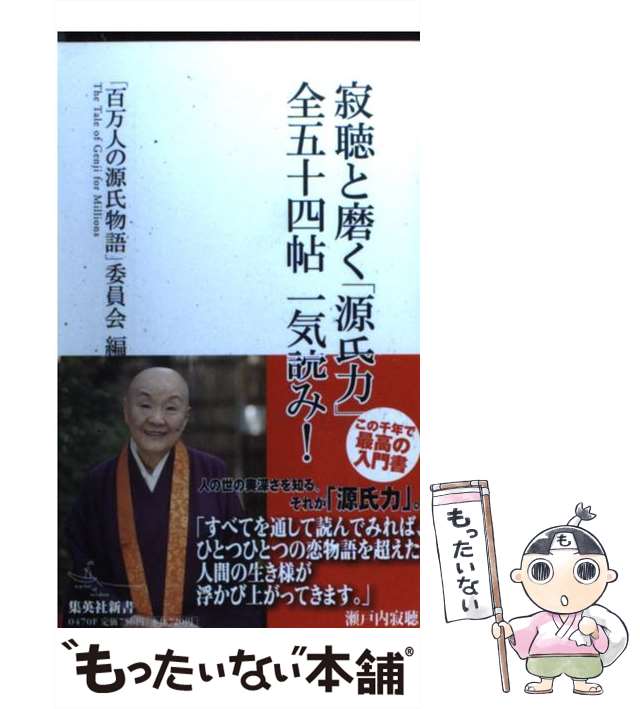 寂聴と磨く「源氏力」
全五十四帖 一気読み!
「百万人の源氏物語」委員会 編
The Tale of Genji for Millions
この千年で
最高の
入門書
人の世の奥深さを知る、
それが「源氏力」。
「すべてを通して読んでみれば、
ひとつひとつの恋物語を超えた
人間の生き様が
浮かび上がってきます。」
瀬戸内寂聴
集英社新書
0470F
もったいない
も
"もったいない"本舗®